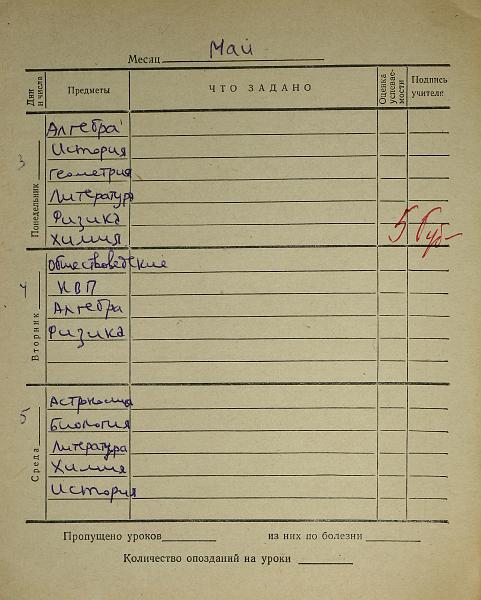 Месяц Май
Дни и числа Предметы ЧТО ЗАДАНО Оценка успевае-мости Подпись учителя
Понедельник 3
Алгебра
История
Геометрия
Литература
Физика
Химия 5
Вторник 4
Обществоведение
НВП
Алгебра
Физика
Среда 5
Астрономия
Биология
Литература
Химия
История
Пропущено уроков из них по болезни
Количество опозданий на уроки